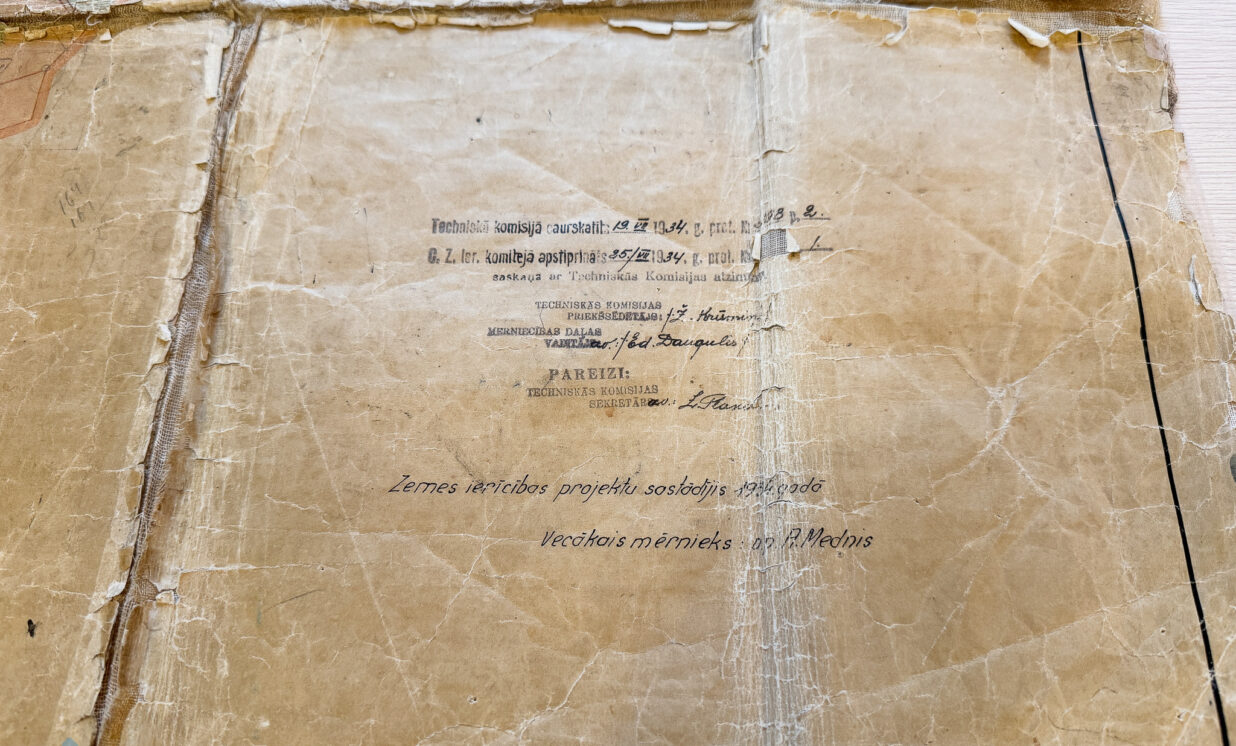 164
Techniskā komisijā caurskatīts 19 VII 1934. g. prot. p. 2.
C. Z. Ier. komitejā apstiprināts 25/VII 1934. g. prot. 1.
saskaņā ar Techniskās Komisijas atzinumu
TECHNISKĀS KOMISIJAS
PRIEKŠSĒDĒTĀJS: /Ž. Krūmiņ
MĒRNIECĪBAS DAĻAS
VADĪTĀJS av.: /Ed. Daugulis/
PAREIZI:
TECHNISKĀS KOMISIJAS
SEKRETĀRS av.:
Zemes ierīcības projektu sastādījis 1934. gadā
Vecākais mērnieks: A. Mednis